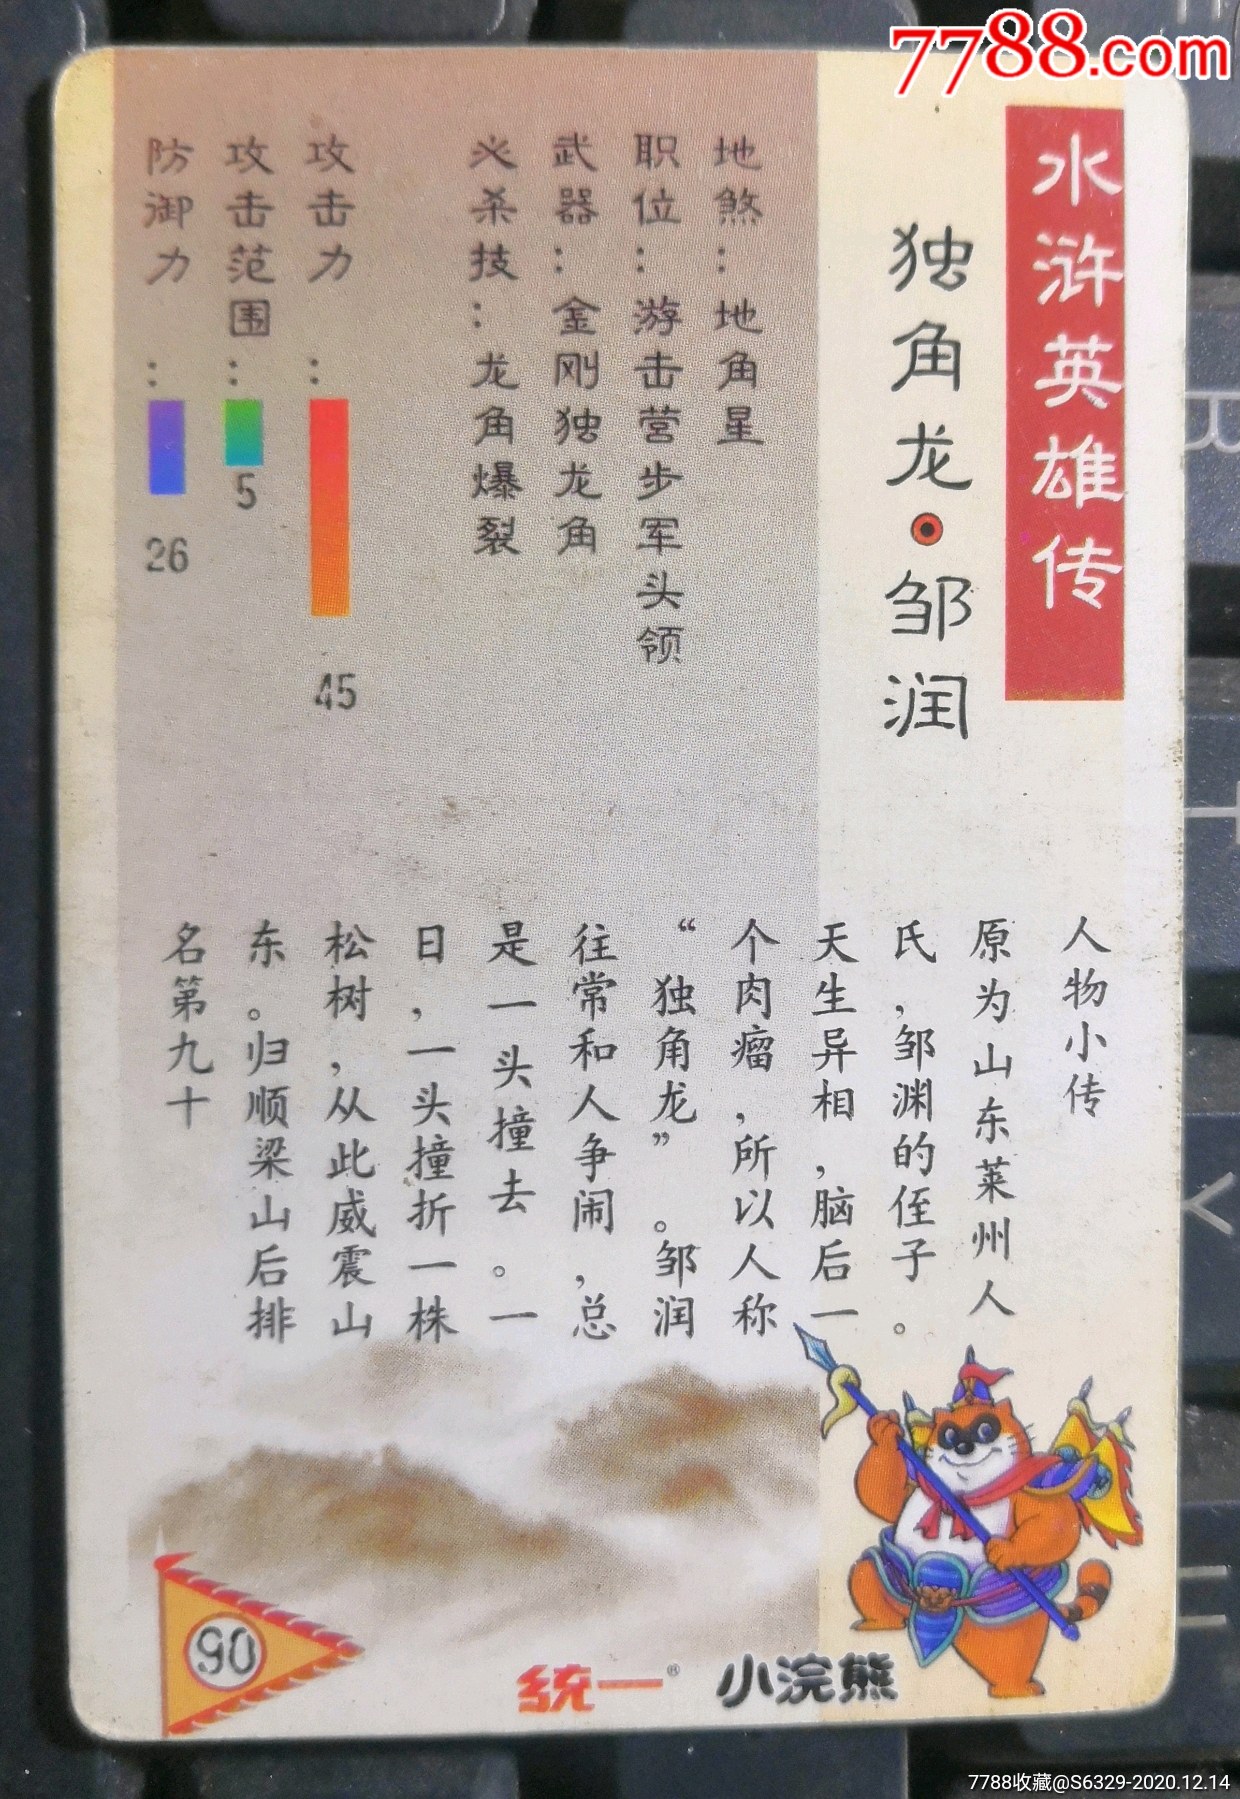 7788.com
水浒英雄传
独角龙·邹润
地煞：地角星
职位：游击营步军头领
武器：金刚独龙角
必杀技：龙角爆裂
攻击力：
45
攻击范围：
5
防御力：
26
人物小传
原为山东莱州人
氏，邹渊的侄子。
天生异相，脑后一
个肉瘤，所以人称
“独角龙”。邹润
往常和人争闹，总
是一头撞去。一
日，一头撞折一株
松树，从此威震山
东。归顺梁山后排
名第九十
90
统一® 小浣熊
R
T
Y
7788收藏@S6329-2020.12.14